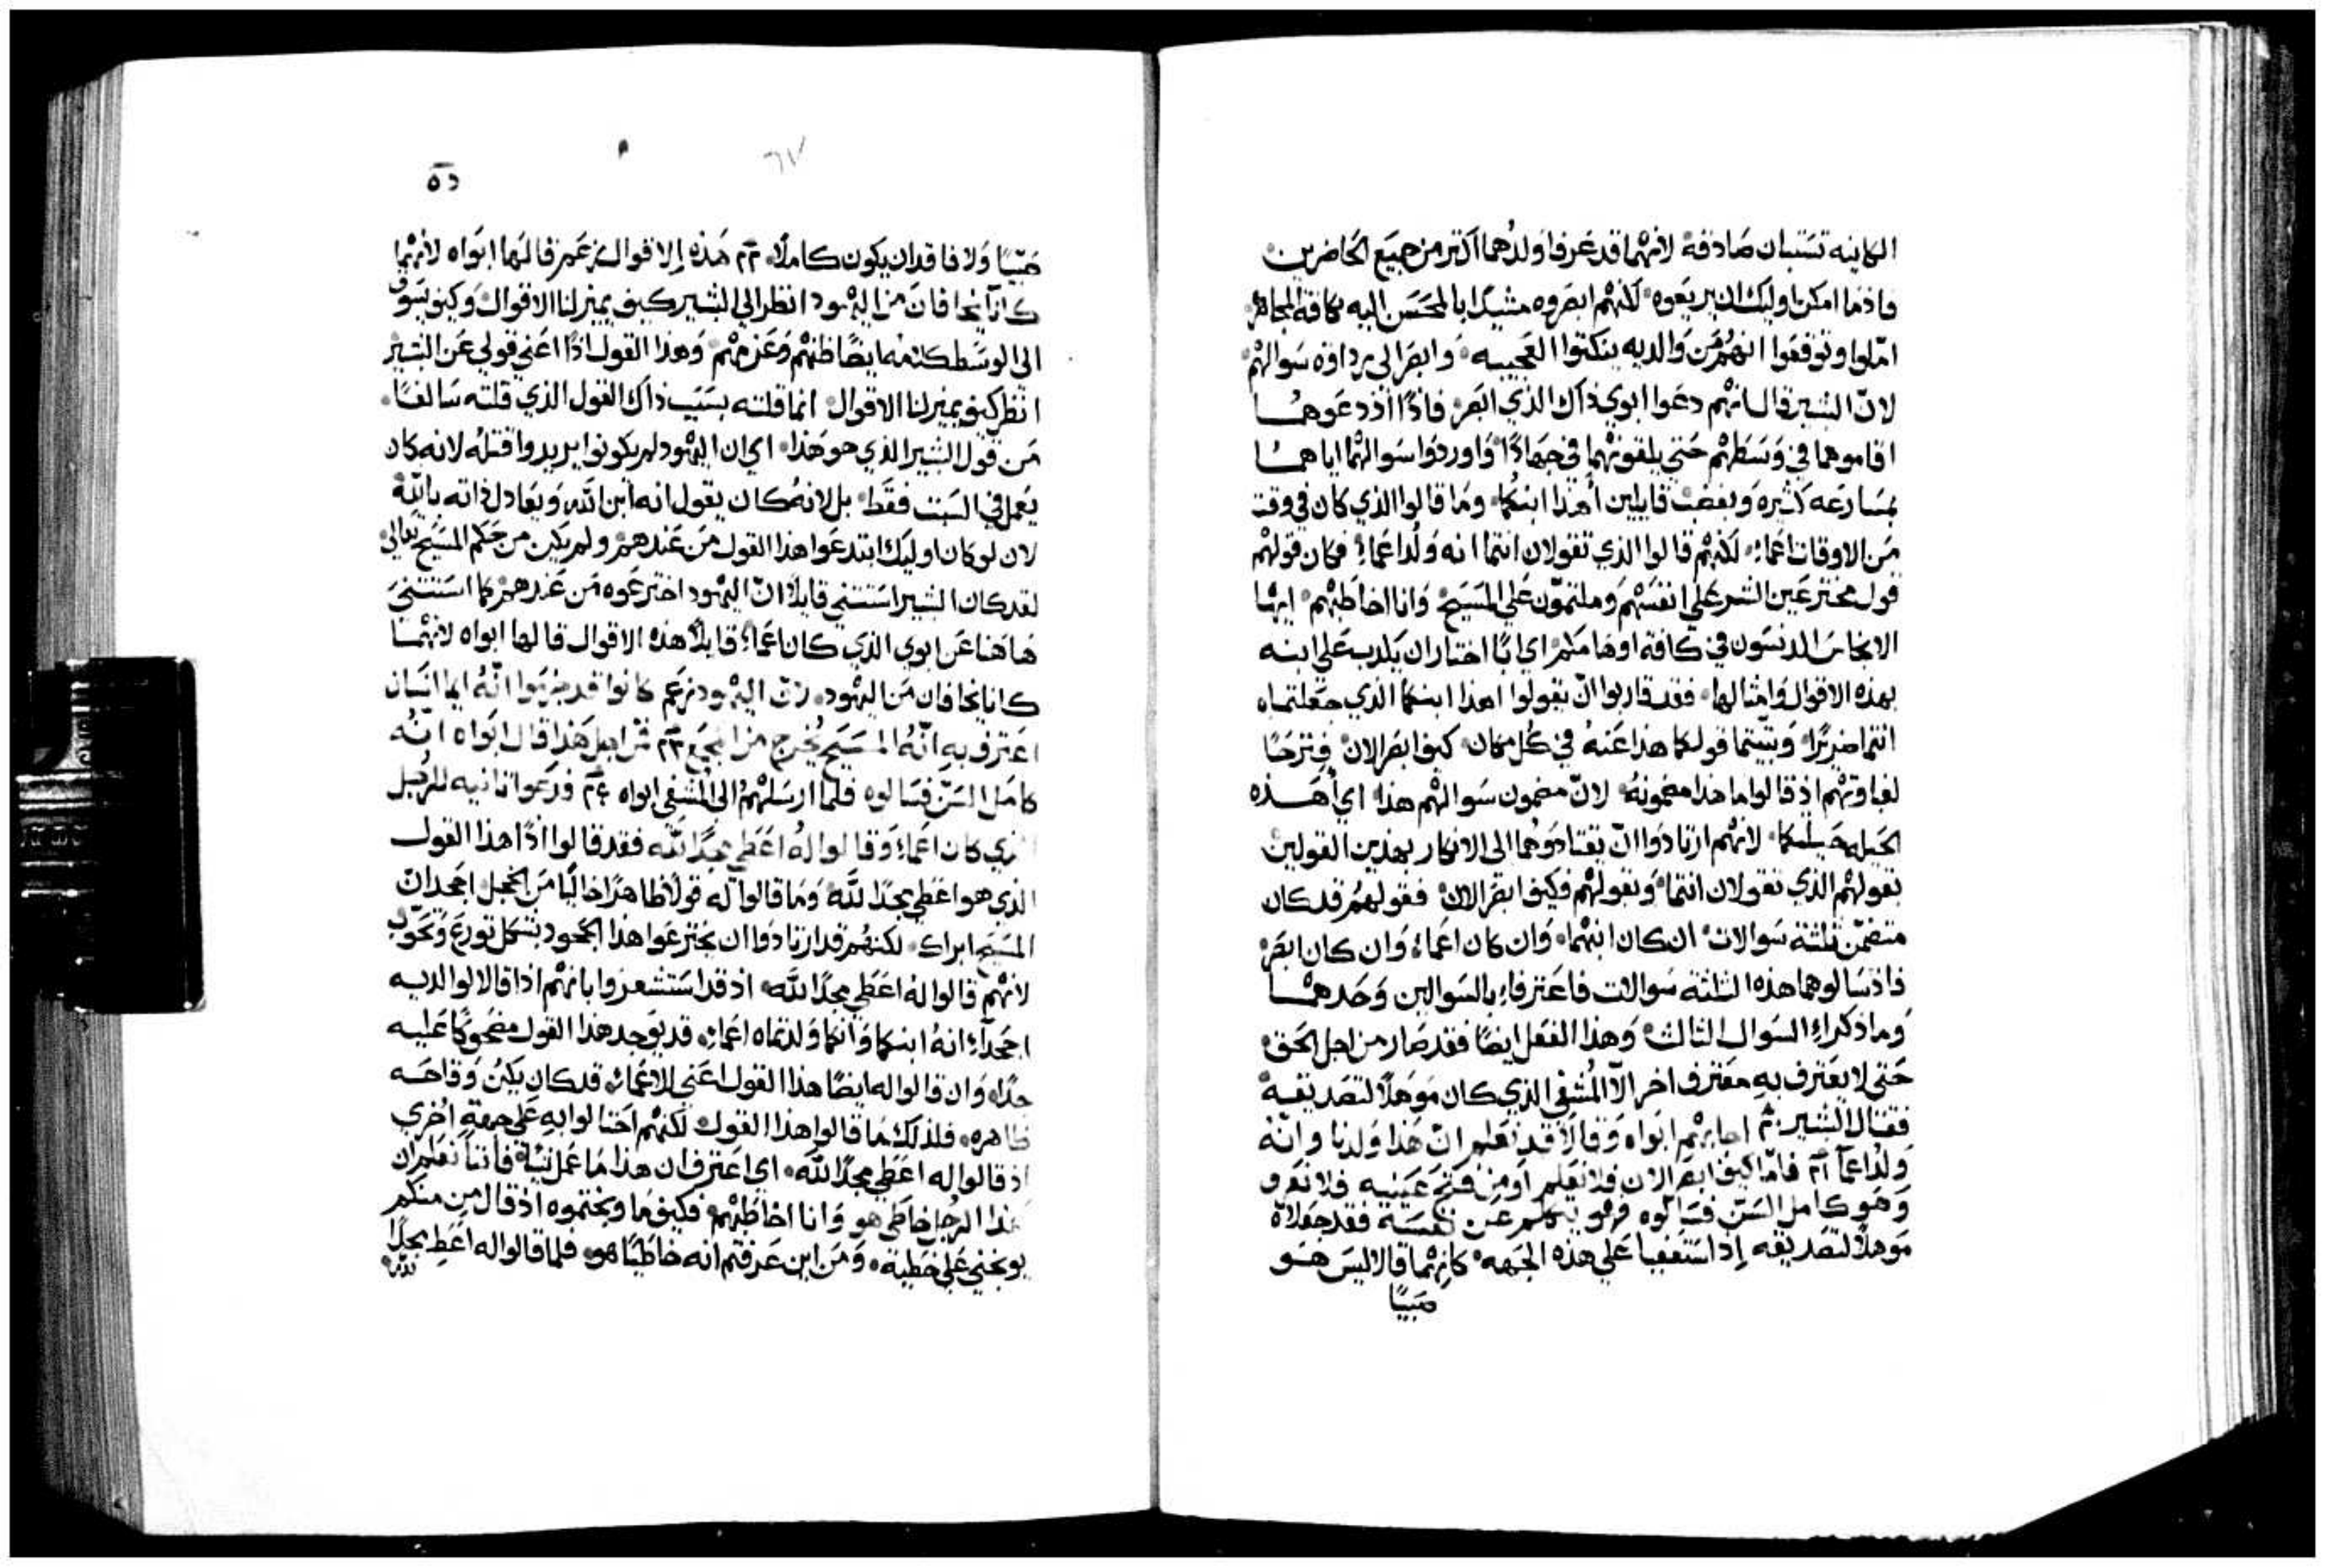 الكاينه تستبان صادقة لانهما قد عرفا ولدهما اكتر من جميع الحاضرين
فاذ ما امكن اوليك ان يريعوه لكنهم ابصروه مشيدًا بالمحسن اليه بكافة المجاهره
امّلوا وتوقعوا انهم من والديه ينكتوا العجيبه وابصر الى رداوة سوالهم
لانّ البشير قال انهم دعوا ابوي ذاك الذي ابصر فاذًا اذ دعوهما
اقاموهما في وسطهم حتي يلقونهما في جهادًا واوردوا سوالهما اياهما
بمسارعه كثيره وبغضب قايلين أهذا ابنكما وما قالوا الذي كان في وقت
من الاوقات اعماء لكنهم قالوا الذي تقولان انتما انه ولد اعماء فكان قولهم
قول مخترعين الشر علي انفسهم وملتموّن علي المسيح وانا اخاطبهم ايها
الانجاس الدنسون في كافة اوهامكم اي ابًا اختار ان يكذب علي ابنه
بهذه الاقوال وامثالها فقد قاربوا انّ يقولوا اهذا ابنكما الذي جعلتماه
انتما ضريرًا وبتيتما قولكما هذا عنه في كل مكان كيف ابصر الان فترحًا
لغباوتهم اذ قالوا ما هذا مضمونه لانّ مضمون سوالهم هذا اي أهذه
الحيله حيلتكما لانهم ارتادوا انّ يقتادوهما الى الانكار بهذين القولين
بقولهم الذي تقولان انتما وبقولهم فكيف ابصر الان فقولهم قد كان
متضمّن ثلثة سوالات ان كان ابنهما وان كان اعماء وان كان ابصر
فاذ سالوهما هذه الثلثه سوالات فاعترفاء بالسوالين وحدهما
وما ذكراء السوال الثالث وهذا الفعل ايضًا فقد صار من اجل الحق
حتى لا يعترف به معترف اخر الاّ المُشفي الذي كان موهلاً لتصديقه
فقال البشير اجابهم ابواه وقالا قد نعلم انّ هذا ولدنا وانّه
ولد اعمآ فامّا كيف ابصر الان فلا نعلم او من فتح عينيه فلا نعرف
وهو كامل السنّ فسالوه فهو يتكلم عن نفسه فقد جعلاه
موهلاً لتصديقه إذ استعفيا علي هذه الجهه كانهما قالا اليس هو
صبيًا
٦٧
صبيًا ولا فاقد ان يكون كاملاً هذه الاقوال قالها ابواه لانهما
كانآ يخافان من اليهود انظر الي البشير كيف يميز لنا الاقوال وكيف يسوق
الى الوسط كتمه ايضًا ظنهم وعزمهم وهذا القول اذًا اعني قولي عن البشير
انظر كيف يميز لنا الاقوال انما قلته بسبب ذاك القول الذي قلته سالفًا
من قول البشير الذي هو هذا اي ان اليهود لم يكونوا يريدوا قتله لانه كان
يعمل في السبت فقط بل لانه كان يقول انه ابن الله ويعادل ذاته بالله
لان لو كان اوليك ابتدعوا هذا القول من عندهم ولم يكن من حكم المسيح تعالى
لقد كان البشير استتني قايلاً انّ اليهود اخترعوه من عندهم كما استتني
هاهنا عن ابوي الذي كان اعماء قايلاً هذه الاقوال قالها ابواه لانهما
كانا يخافان من اليهود لانّ اليهود كانوا قد جزموا انّه ايما انسان
اعترف به انّه المسيح يُخرج من المجمع من اجل هذا قال ابواه انّه
كامل السنّ فسالوه فلما ارسلهم الى المُشفى ابواه فدعوا ثانيه للرجل
الذي كان اعماء وقالوا له اعطى مجدًا لله فقد قالوا اذًا هذا القول
الذي هو اعطي مجدًا لله وما قالوا له قولاً ظاهرًا خاليًا من الخجل اجحد انّ
المسيح ابراك لكنهم قد ارتادوا ان يخترعوا هذا الجحود بشكل تورع وتحوّب
لانهم قالوا له اعطي مجدًا لله اذ قد استشعروا بانهم اذا قالا لوالديه
اجحدآء انه ابنكما وانكما ولدتماه اعماء قد يوجد هذا القول مضحوكًا عليه
جدًا وان قالوا له ايضًا هذا القول اعني للاعماء قد كان يكن وقاحه
ظاهره فلذلك ما قالوا هذا القول لكنهم احتالوا به علي جهة اخري
اذ قالوا له اعطي مجدًا لله اي اعترف ان هذا ما عمل شيًا فاننا نعلم ان
هذا الرجل خاطي هو وانا اخاطبهم فكيف ما وبختموه اذ قال من منكم
يوبخني علي خطية ومن اين عرفتم انه خاطيًا هو فلما قالوا له اعط مجدًا
لله